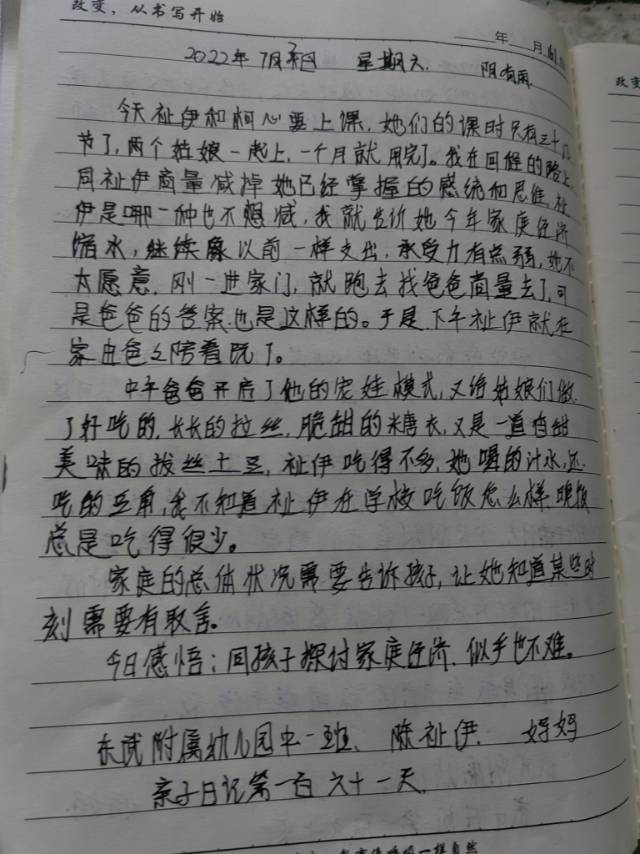 改变，从书写开始
年 月 日
2022年7月 日 星期六. 阴有雨.
今天祉伊和柯心要上课，她们的课时只有三十几
节了，两个姑娘一起上，一个月就用完了。我在回程的路上
同祉伊商量减掉她已经掌握的感统和思维，祉
伊是哪一种也不想减，我就告诉她今年家庭经济
缩水，继续像以前一样支出，承受力有点弱，她不
太愿意，刚一进家门，就跑去找爸爸商量去了，可
是爸爸的答案也是这样的。于是下午祉伊就在
家由爸爸陪着玩了。
中午爸爸开启了他的宠娃模式，又给姑娘们做
了好吃的，长长的拉丝，脆甜的糖衣，又是一道香甜
美味的拔丝土豆，祉伊吃得不多，她喝的汁水，还
吃的豆角，我不知道祉伊在学校吃饭怎么样，晚饭
总是吃得很少。
家庭的总体状况需要告诉孩子，让她知道某些时
刻需要有取舍。
今日感悟：同孩子探讨家庭经济，似乎也不难。
附属幼儿园中一班、陈祉伊、妈妈
亲子日记第一百六十一天
一样自然
改变